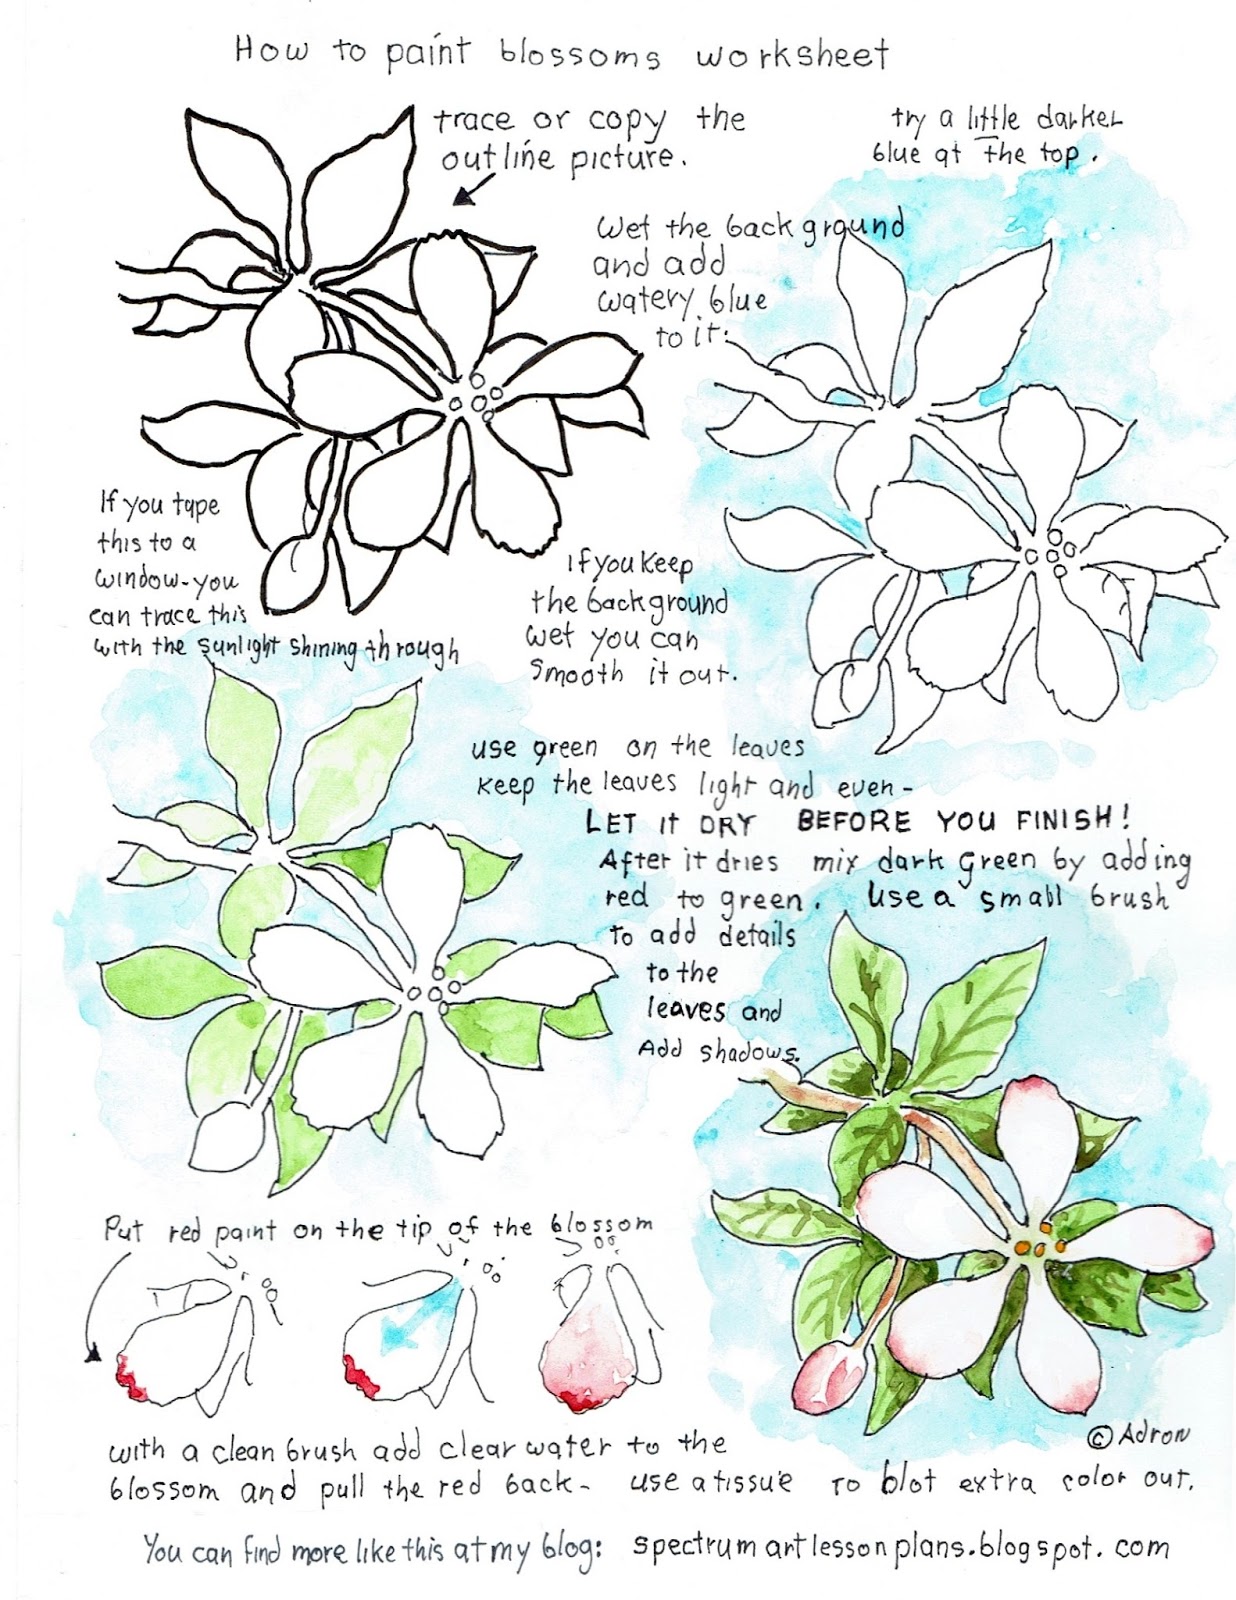 How to paint blossoms worksheet
trace or copy the
outline picture.
try a little darker
blue at the top.
Wet the background
and add
watery blue
to it.
If you tape
this to a
window-you
can trace this
with the sunlight shining through
If you keep
the background
wet you can
smooth it out.
use green on the leaves
keep the leaves light and even-
LET IT DRY BEFORE YOU FINISH!
After it dries mix dark green by adding
red to green. Use a small brush
to add details
to the
leaves and
Add shadows.
Put red paint on the tip of the blossom
© Adron
with a clean brush add clear water to the
blossom and pull the red back- use a tissue to blot extra color out.
You can find more like this at my blog: spectrumartlessonplans.blogspot.com